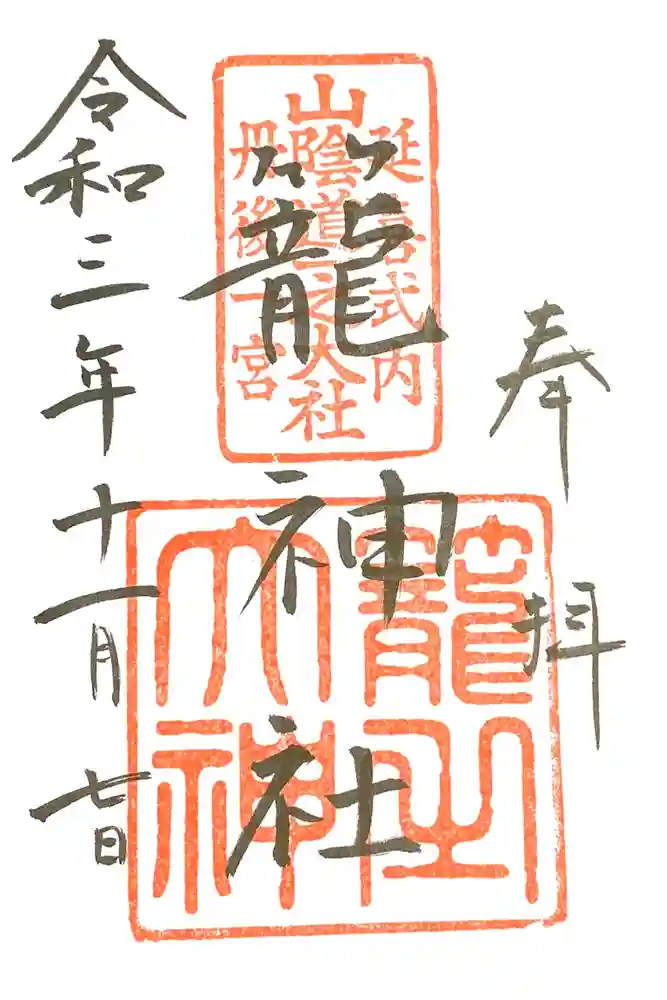 奉拝
延喜式内
山陰道一之大社
丹後一宮
籠神社
籠之
大神
令和三年十一月七日